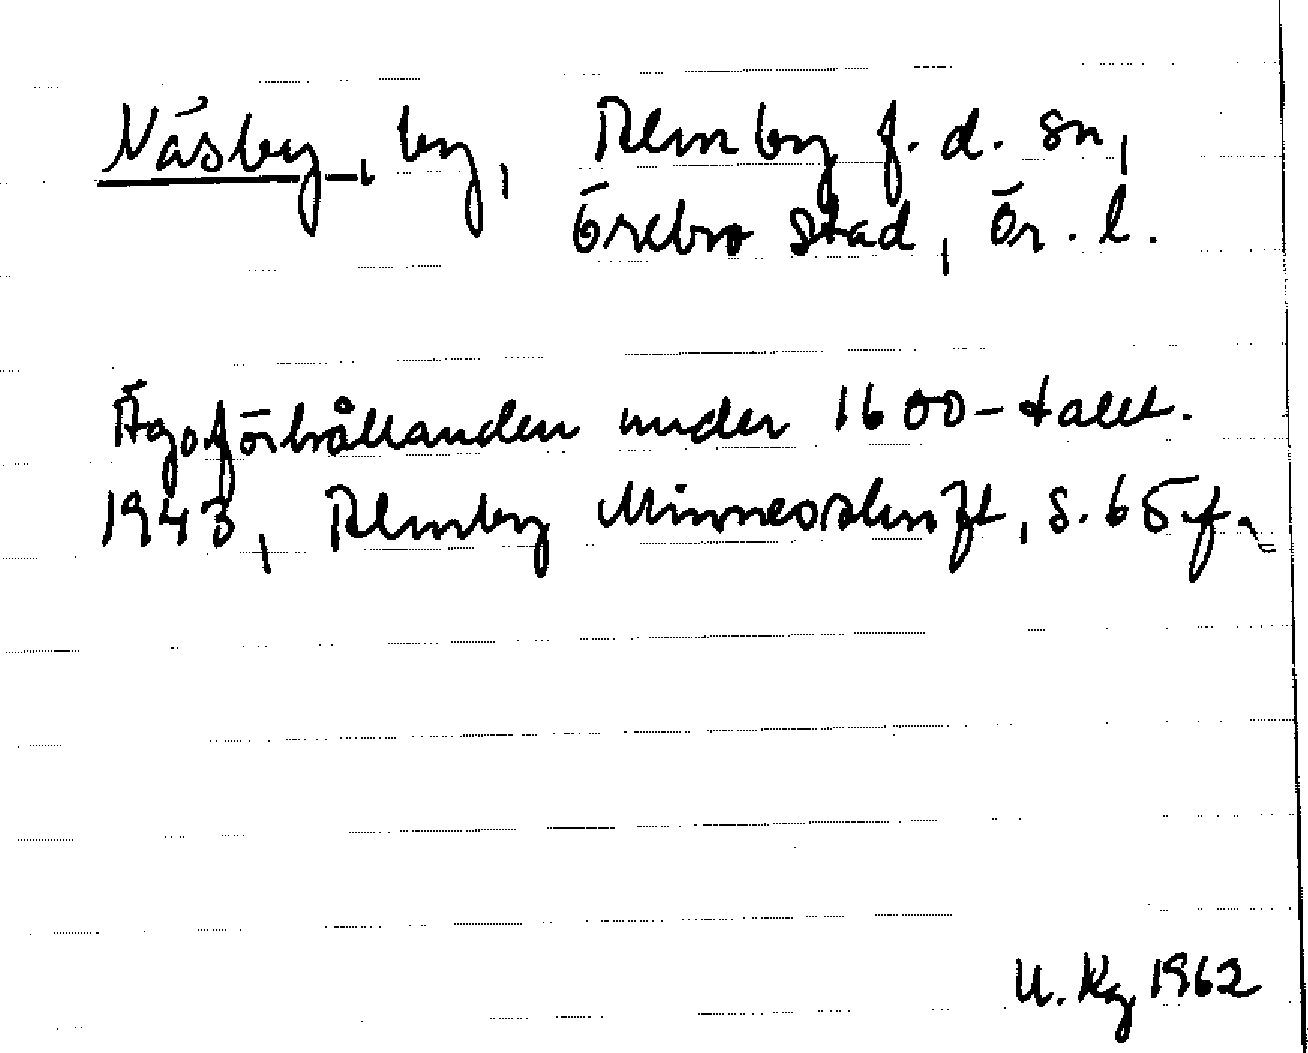 Näsby, by, Almby f.d. sn,
Örebro stad, Ör. l.
Ägoförhållanden under 1600-talet.
1943, Almby Minnesskrift, s. 65 f.
U. Kg 1962